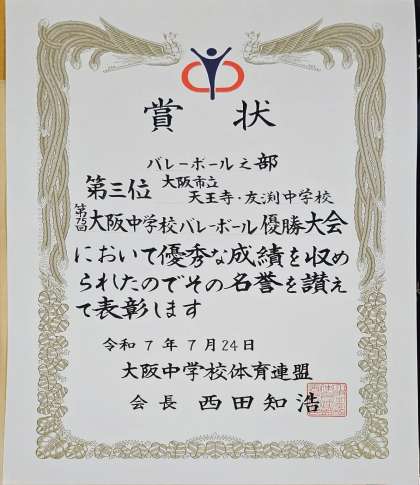 賞状
バレーボール之部
第三位 大阪市立
天王寺・友渕中学校
第75回大阪中学校バレーボール優勝大会
において優秀な成績を収め
られたのでその名誉を讃え
て表彰します
令和7年7月24日
大阪中学校体育連盟
会長 西田知浩